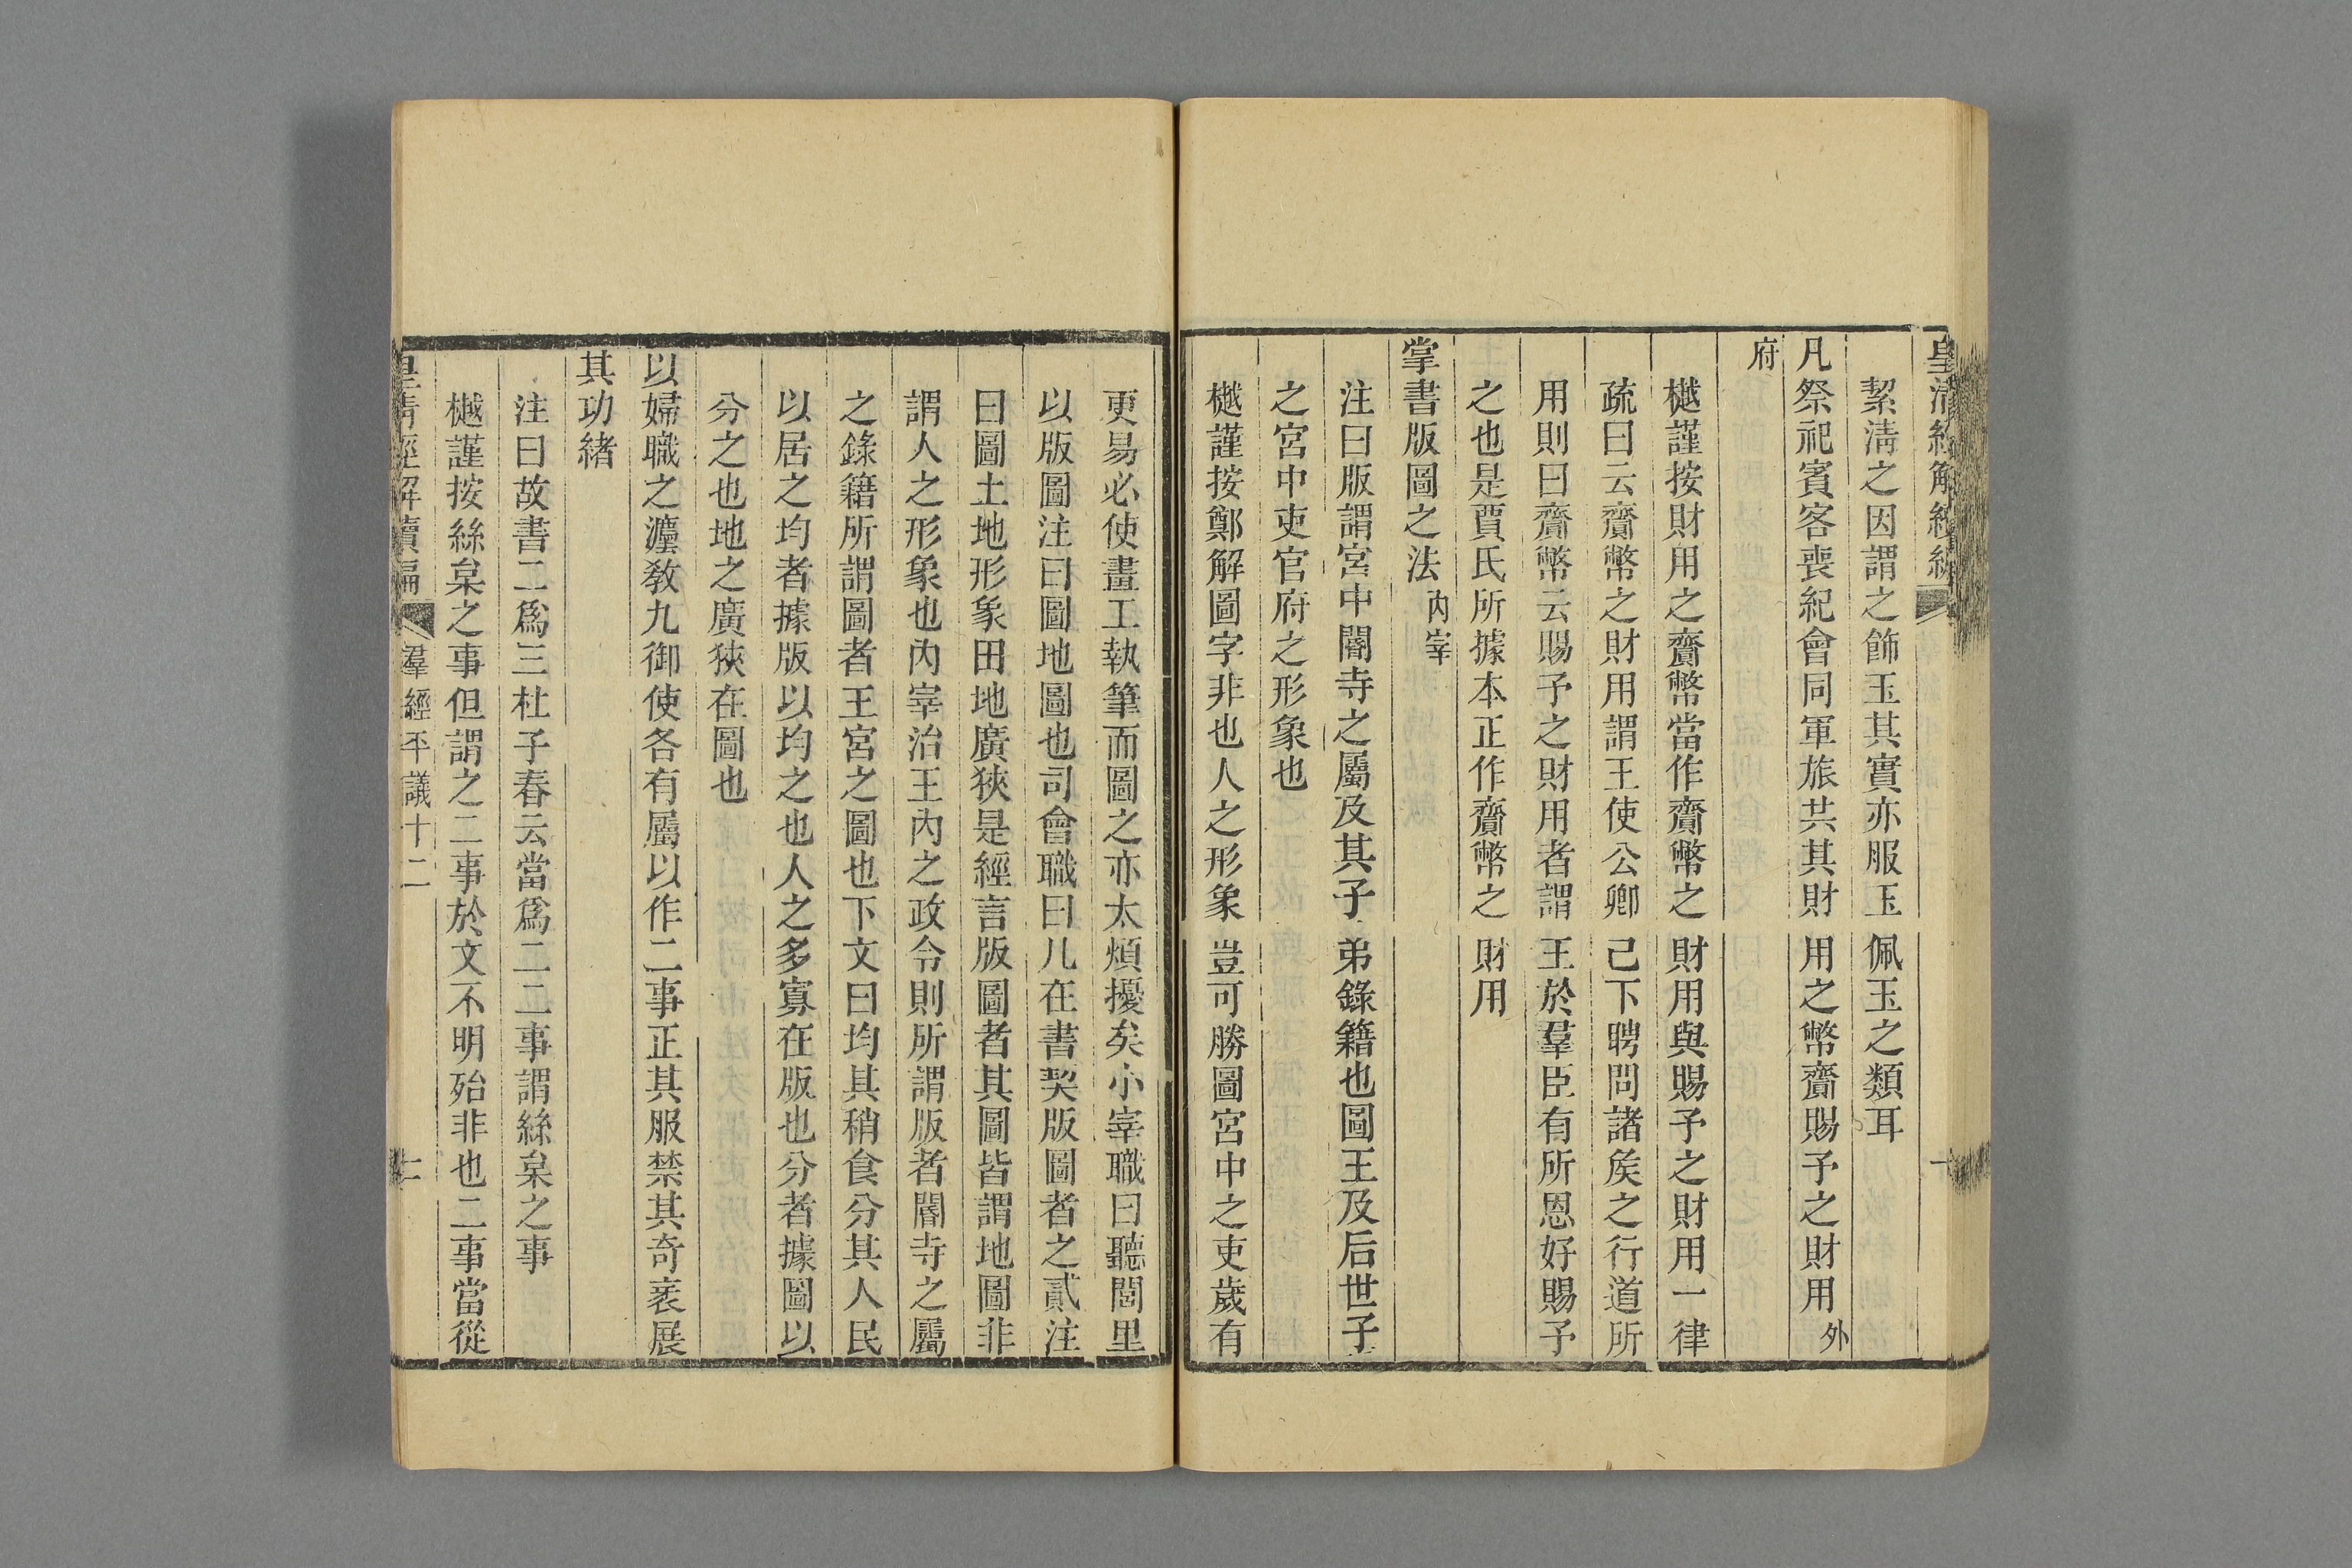 絜淸之因謂之飾玉其實亦服玉佩玉之類耳
凡祭祀賓客喪紀會同軍旅共其財用之幣齎賜予之財用外
府
樾謹按財用之齎幣當作齎幣之財用與賜予之財用一律
疏曰云齎幣之財用謂王使公卿己下聘問諸矦之行道所
用則曰齎幣云賜予之財用者謂王於羣臣有所恩好賜予
之也是賈氏所據本正作齎幣之財用
掌書版圖之法內宰
注曰版謂宮中閽寺之屬及其子弟錄籍也圖王及后世子
之宮中吏官府之形象也
樾謹按鄭解圖字非也人之形象豈可勝圖宮中之吏歲有
更易必使畫工執筆而圖之亦太煩擾矣小宰職曰聽閭里
以版圖注曰圖地圖也司會職曰凡在書契版圖者之貳注
曰圖土地形象田地廣狹是經言版圖者其圖皆謂地圖非
謂人之形象也內宰治王內之政令則所謂版者閽寺之屬
之錄籍所謂圖者王宮之圖也下文曰均其稍食分其人民
以居之均者據版以均之也人之多寡在版也分者據圖以
分之也地之廣狹在圖也
以婦職之灋敎九御使各有屬以作二事正其服禁其奇衺展
其功緖
注曰故書二爲三杜子春云當爲二二事謂絲枲之事
樾謹按絲枲之事但謂之二事於文不明殆非也二事當從
皇淸經解續編 羣經平議十二